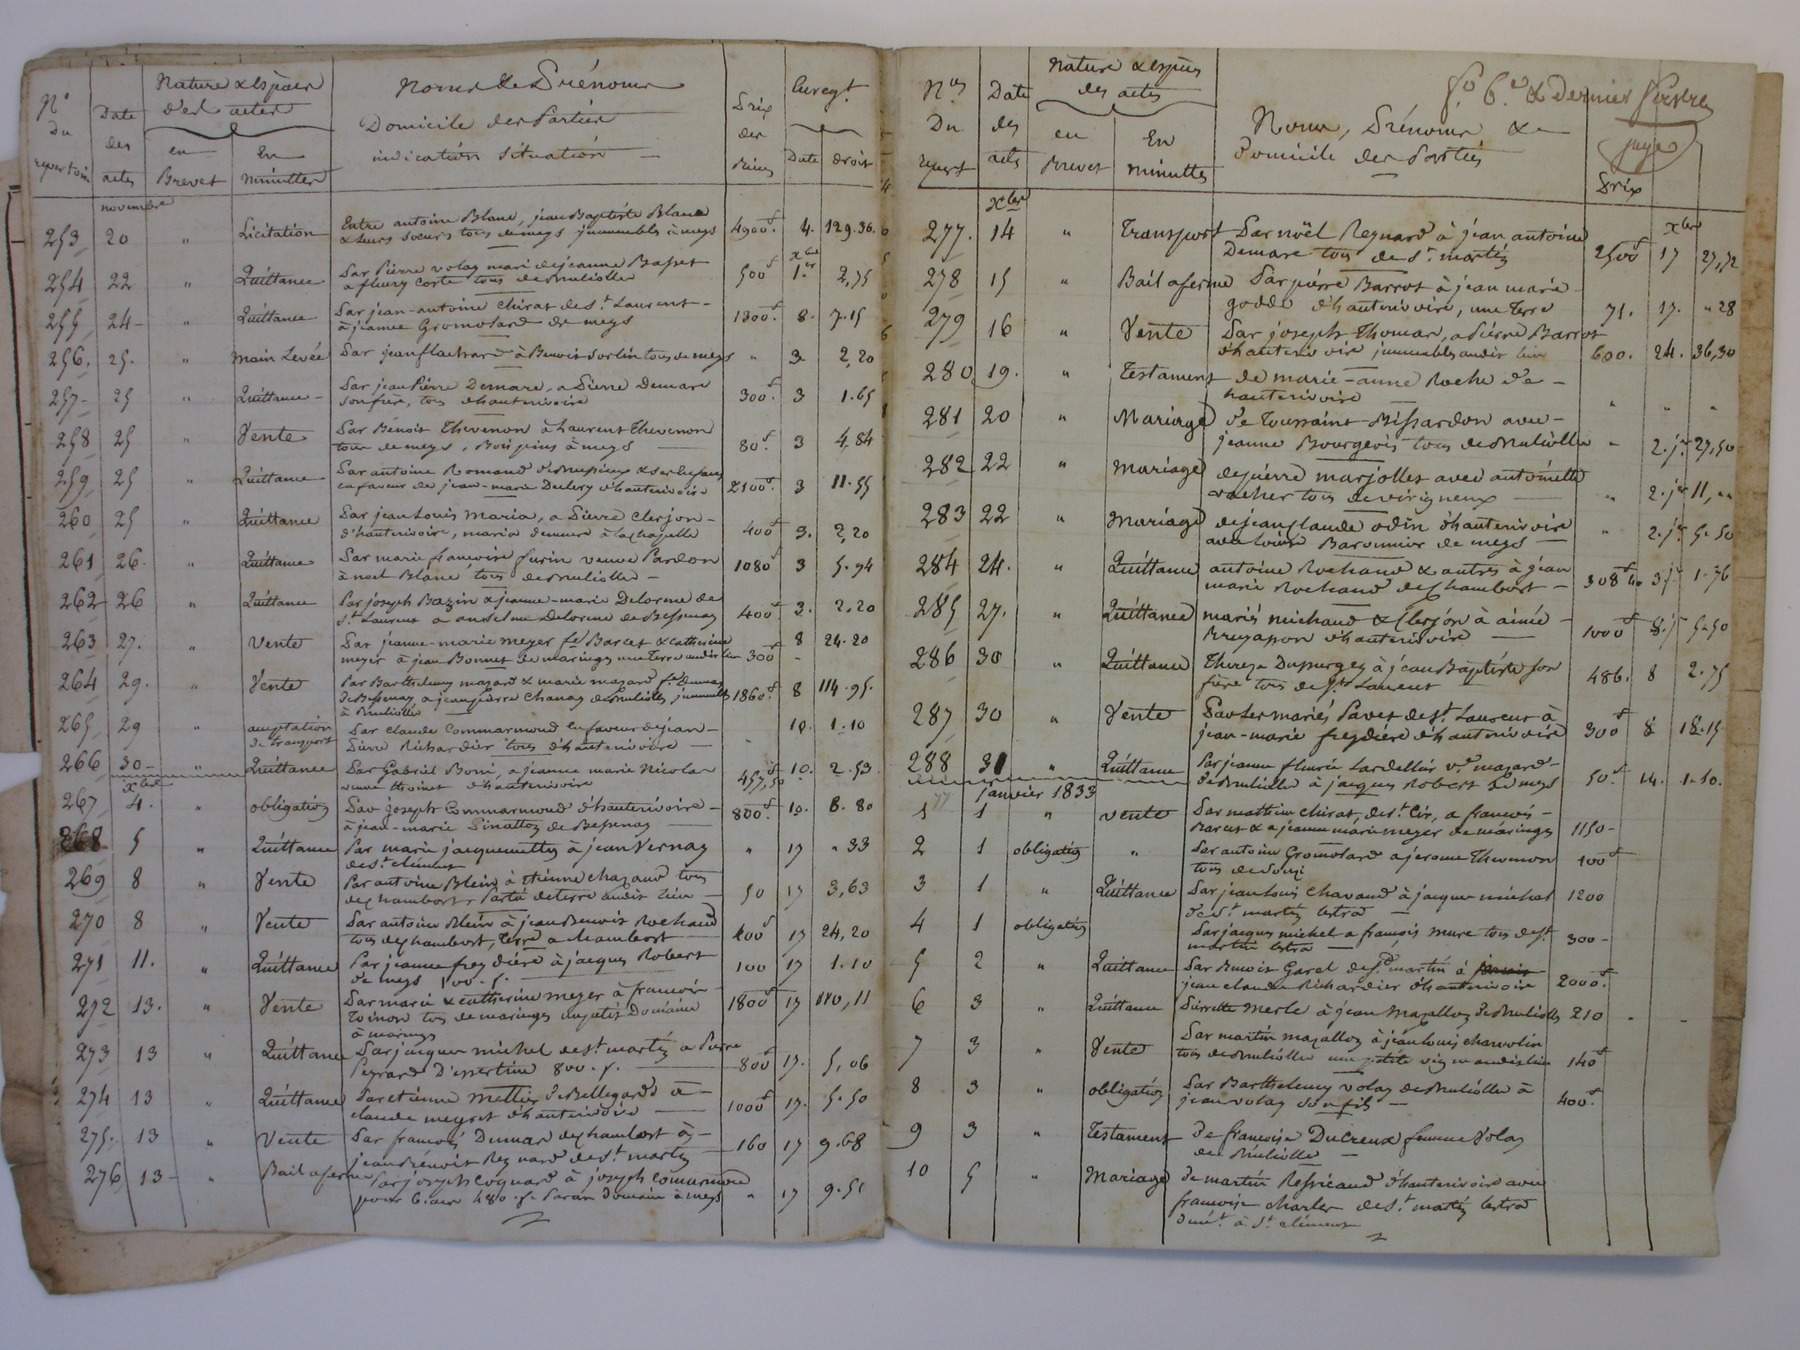 Nº
Du
repertoire
Date
des
actes
Nature & Espèces
Des actes
en
Brevet
En
Minuttes
Noms & Prénoms
Domicile des Parties
indication situation
Prix
des
Biens
Enregt.
Date
droit
novembre
253 20 " Licitation Entre antoine Blanc, jean Baptiste Blanc
& leurs soeurs tous de meys immeubles à meys 4900f. 4. 129.36.
Xbre
254 22 " Quittance Par Pierre volay mari de jeanne Basset
a fleury Corte tous de Brullioles 500f 1er 2,75
255 24 " Quittance Par jean-antoine Chirat de St. Laurent
à jeanne Gromolard de meys 1300f. 8. 7.15
256. 25. " main Levée Par jean flachard à Benoit Sorlin tous de meys " 3 2,20
257 25 " Quittance Par jean Pierre Demare, a Pierre Demare
son frère, tous d'hauterivoire 300f. 3 1.65
258 25 " Vente Par Benoit Thevenon à Laurent Thevenon
tous de meys, Bois pins à meys 80f. 3 4,84
259 25 " Quittance Par antoine Romand
en faveur de jean-marie d'hauterivoire 2100f. 3 11.55
260 25 " Quittance Par jean Louis Maria, a Pierre Clerjon
d'hauterivoire, maria demeure à la chapelle 400f 3. 2,20
261 26. " Quittance Par marie francoise furin veuve Pardon
à noel Blanc tous de Brullioles 1080f 3 5.94
262 26 " Quittance Par joseph Bazin & jeanne-marie Delorme de
St. Laurent a anselme Delorme de Bessenay 400f. 3. 2,20
263 27. " vente Par jeanne-marie meyer fe Barcet & Catherine
meyer à jean Bonnet de maringes une Terre audit lieu 300f 8 24.20
264 29. " Vente Par Barthelemy mazard & marie mazard fe
de Bessenay a jean pierre Chanay de Brullioles immeubles
à Brullioles 1860f. 8 114.95.
265 29 "
de transport Par Claude Commarmond en faveur de jean
Pierre Richardier tous d'hauterivoire " 10. 1.10
266 30 " Quittance Par Gabriel Boni, a jeanne marie Nicolas
veuve d'hauterivoire 457,50 10. 2.53
Xbre
267 4. " obligation Par joseph Commarmond d'hauterivoire
à jean-marie Pinattoz de Bessenay 800f. 10. 8.80
268 5 " Quittance Par marie jacquemettoz à jean Vernay
de St. clément " 17 " 33
269 8 " Vente Par antoine Blein à étienne chazaud tous
de chambost, Partie de terre audit lieu 50 17 3,63
270 8 " Vente Par antoine Blein à jean Benoit Rochand
tous de chambost, Terre a chambost 400f 17 24,20
271 11. " Quittance Par jeanne freydière à jacques Robert
de meys 100.f. 100 17 1.10
272 13. " Vente Par marie & catherine meyer à francois
Toinon tous de maringes un petit Domaine
à maringes 1800f 17 110,11
273 13 " Quittance Par jacques michel de St. martin a Pierre
Peyrard D'essertine 800.f. 800f 17. 5,06
274 13 " Quittance Par etienne mettier de Bellegarde a
claude meyret d'hauterivoire 1000f 17. 5.50
275. 13 " Vente Par francois Dumas de chambost à
jean Benoit Reynard de St. martin 160 17 9.68
276 13 " Bail a ferme Par joseph Coquard à joseph Comarmond
pour 6. ans 480.f. Par an Domaine à meys " 17 9.51
Nos
Du
Repert
Date
des
actes
Nature & Espèces
des actes
en
Brevet
En
Minuttes
fo. 6.e & Dernier
page
Noms, Prénoms &
Domicile des Parties
Prix
Xbre
Xbre
277. 14 " Transport Par noël Reynard à jean antoine
Demare tous de St. martin 2500f 17 27,72
278 15 " Bail a ferme Par pierre Barrot à jean marie
godde d'hauterivoire, une Terre 71. 17. " 28
279 16 " Vente Par joseph Thomas, a Pierre Barrot
d'hauterivoire immeubles audit lieu 600. 24. 36,30
280 19. " Testament de marie-anne Roche de
hauterivoire " " "
281 20 " Mariage de Toussaint Bissardon avec
jeanne Bourgeois tous de Brullioles " 2.jer 27,50
282 22 " Mariage de pierre marjollet avec antoinette
vacher tous de virigneux " 2.jer 11, ""
283 22 " Mariage de jean claude odin d'hauterivoire
avec Louise Baronnier de meys " 2.jer 5.50
284 24. " Quittance antoine Rochand & autres à jean
marie Rochand de Chambost 308f 3 jr 1.76
285 27. " Quittance mariés michaud & Clerjon à aimé
Bruyasson d'hauterivoire 1000f 8.jr 5.50
286 30 " Quittance Therese Dupuy à jean Baptiste son
frère tous de St. Laurent 486. 8 2.75
287 30 " Vente Par les mariés Pavet de St. Laurent à
jean-marie freydière d'hauterivoire 300f 8 18.15
288 31 " Quittance Par jeanne fleurie Lardellier ve. mazard
de Brulliole à jacques Robert de meys 50f. 14. 1.10.
janvier 1833
1 1 " vente Par mathieu Chirat, de St. Cir, a francois
Barcet & a jeanne marie meyer de maringes 1150
2 1 obligation " Par antoine Gromolard a jerome Thevenon
tous de Souzi 100f
3 1 " Quittance Par jean Louis Chavand à jacques michel
de St. martin lestra 1200
4 1 obligation Par jacques michel a francois mure tous de St.
martin lestra 300
5 2 " Quittance Par Benoit Garel de St. martin à
jean claude Richardier d'hauterivoire 2000f.
6 3 " Quittance Pierrette Merle à jean Mazalloz de Brullioles 210
7 3 " Vente Par martin mazalloz à jean louis charvolin
tous de Brullioles une petite vigne audit lieu 140f
8 3 " obligation Par Barthelemy volay de Brullioles à
jean volay son fils 400f.
9 3 " Testament de francoise Ducreux femme Volay
de Brulliole
10 5 " Mariage de martin Ressicaud d'hauterivoire avec
francoise charles de St. martin lestra
demt. à St. clément